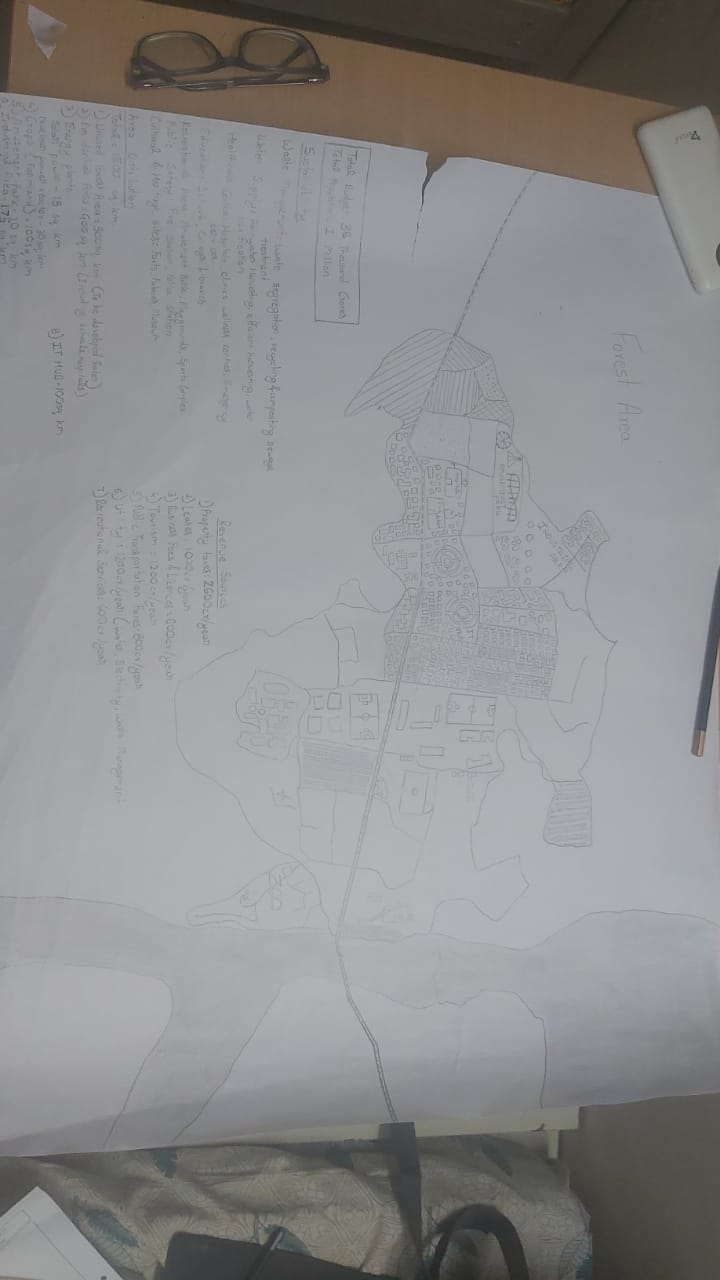 Forest Area
Industrial Area
Amusement Park
Total Budget: 36 Thousand Crores
Total Population: 1 Million
Sustainability
Waste Management: Waste segregation, recycling & composting sewage
treatment
Water Supply: Rainwater Harvesting, efficient harvesting, water
purification
Healthcare Centres: Hospitals, clinics, wellness centres, Emergency
services
Education: Schools, Colleges, Libraries
Recreational Areas: Amusement Park, Playgrounds, Sports Complex
Public Safety: Fire Station, Police Station
Cultural & Heritage Sites: Forts, Museum
Area Distribution
Total = 1500 sq km
1) Unused forest Area = 500 sq km (To be developed later)
2) Residential Area = 400 sq km (Including schools, hospitals)
3) Energy plants
Solar power - 15 sq km
Nuclear power reactor - 30 sq km
4) Crops (Farmland) - 100 sq km
5) Amusement Park - 10 sq km
6) Industrial Area - 175 sq km
8) IT HUB = 100 sq km
Revenue Sources
1) Property taxes: 2600cr/year
2) Leases: 1000cr/year
3) Business Fees & Licences = 600cr/year
4) Tourism = 1200 cr/year
5) Public Transportation Fares: 800cr/year
6) Utility = 1200cr/year (Water, Electricity, Waste Management
7) Recreational Services = 600cr/year